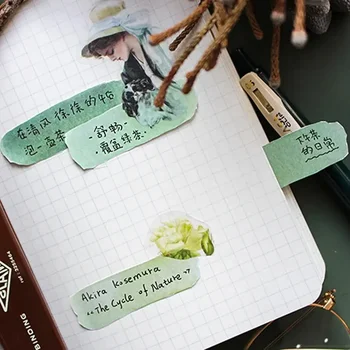 在清风徐徐的午后
泡一壶茶
-舒畅-
·覆盆绿茶·
下午茶
的日常
Akira Kosemura
《The Cycle of Nature》
BINDING